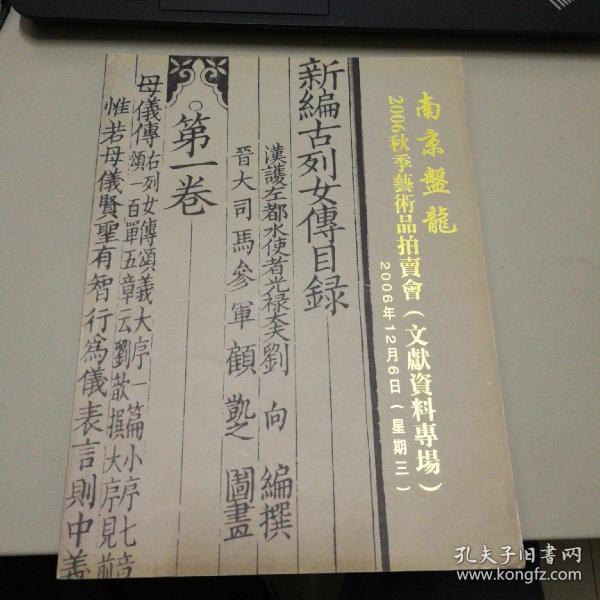 南京盤龍
2006秋季藝術品拍賣會(文獻資料專場)
2006年12月6日(星期三)
新編古列女傳目錄
漢護左都水使者光禄大夫劉向編撰
晉大司馬參軍顧凱之圖畫
第一卷
母儀傳
右列女傳頌義大序一篇小序七首
頌一百單五章云劉歆撰大序見前
惟若母儀賢聖有智行為儀表言則中義
孔夫子旧书网
www.kongfz.com